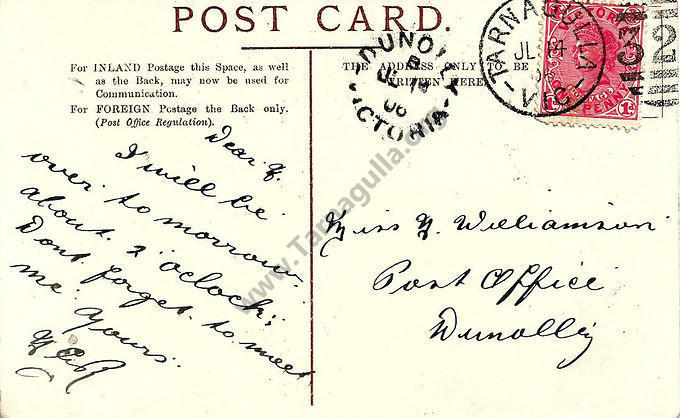 POST CARD.
For INLAND Postage this Space, as well
as the Back, may now be used for
Communication.
For FOREIGN Postage the Back only.
(Post Office Regulation).
THE ADDRESS ONLY TO BE
WRITTEN HERE.
DUNOLLY
JL 14
06
VICTORIA
TARNAGULLA
JL 14
VIC
PENNY
Dear
I will be
over to morrow
about 2 oclock;
Dont forget to meet
me. Yours.
Miss Williamson
Post Office
Dunolly
www.Tarnagulla.org